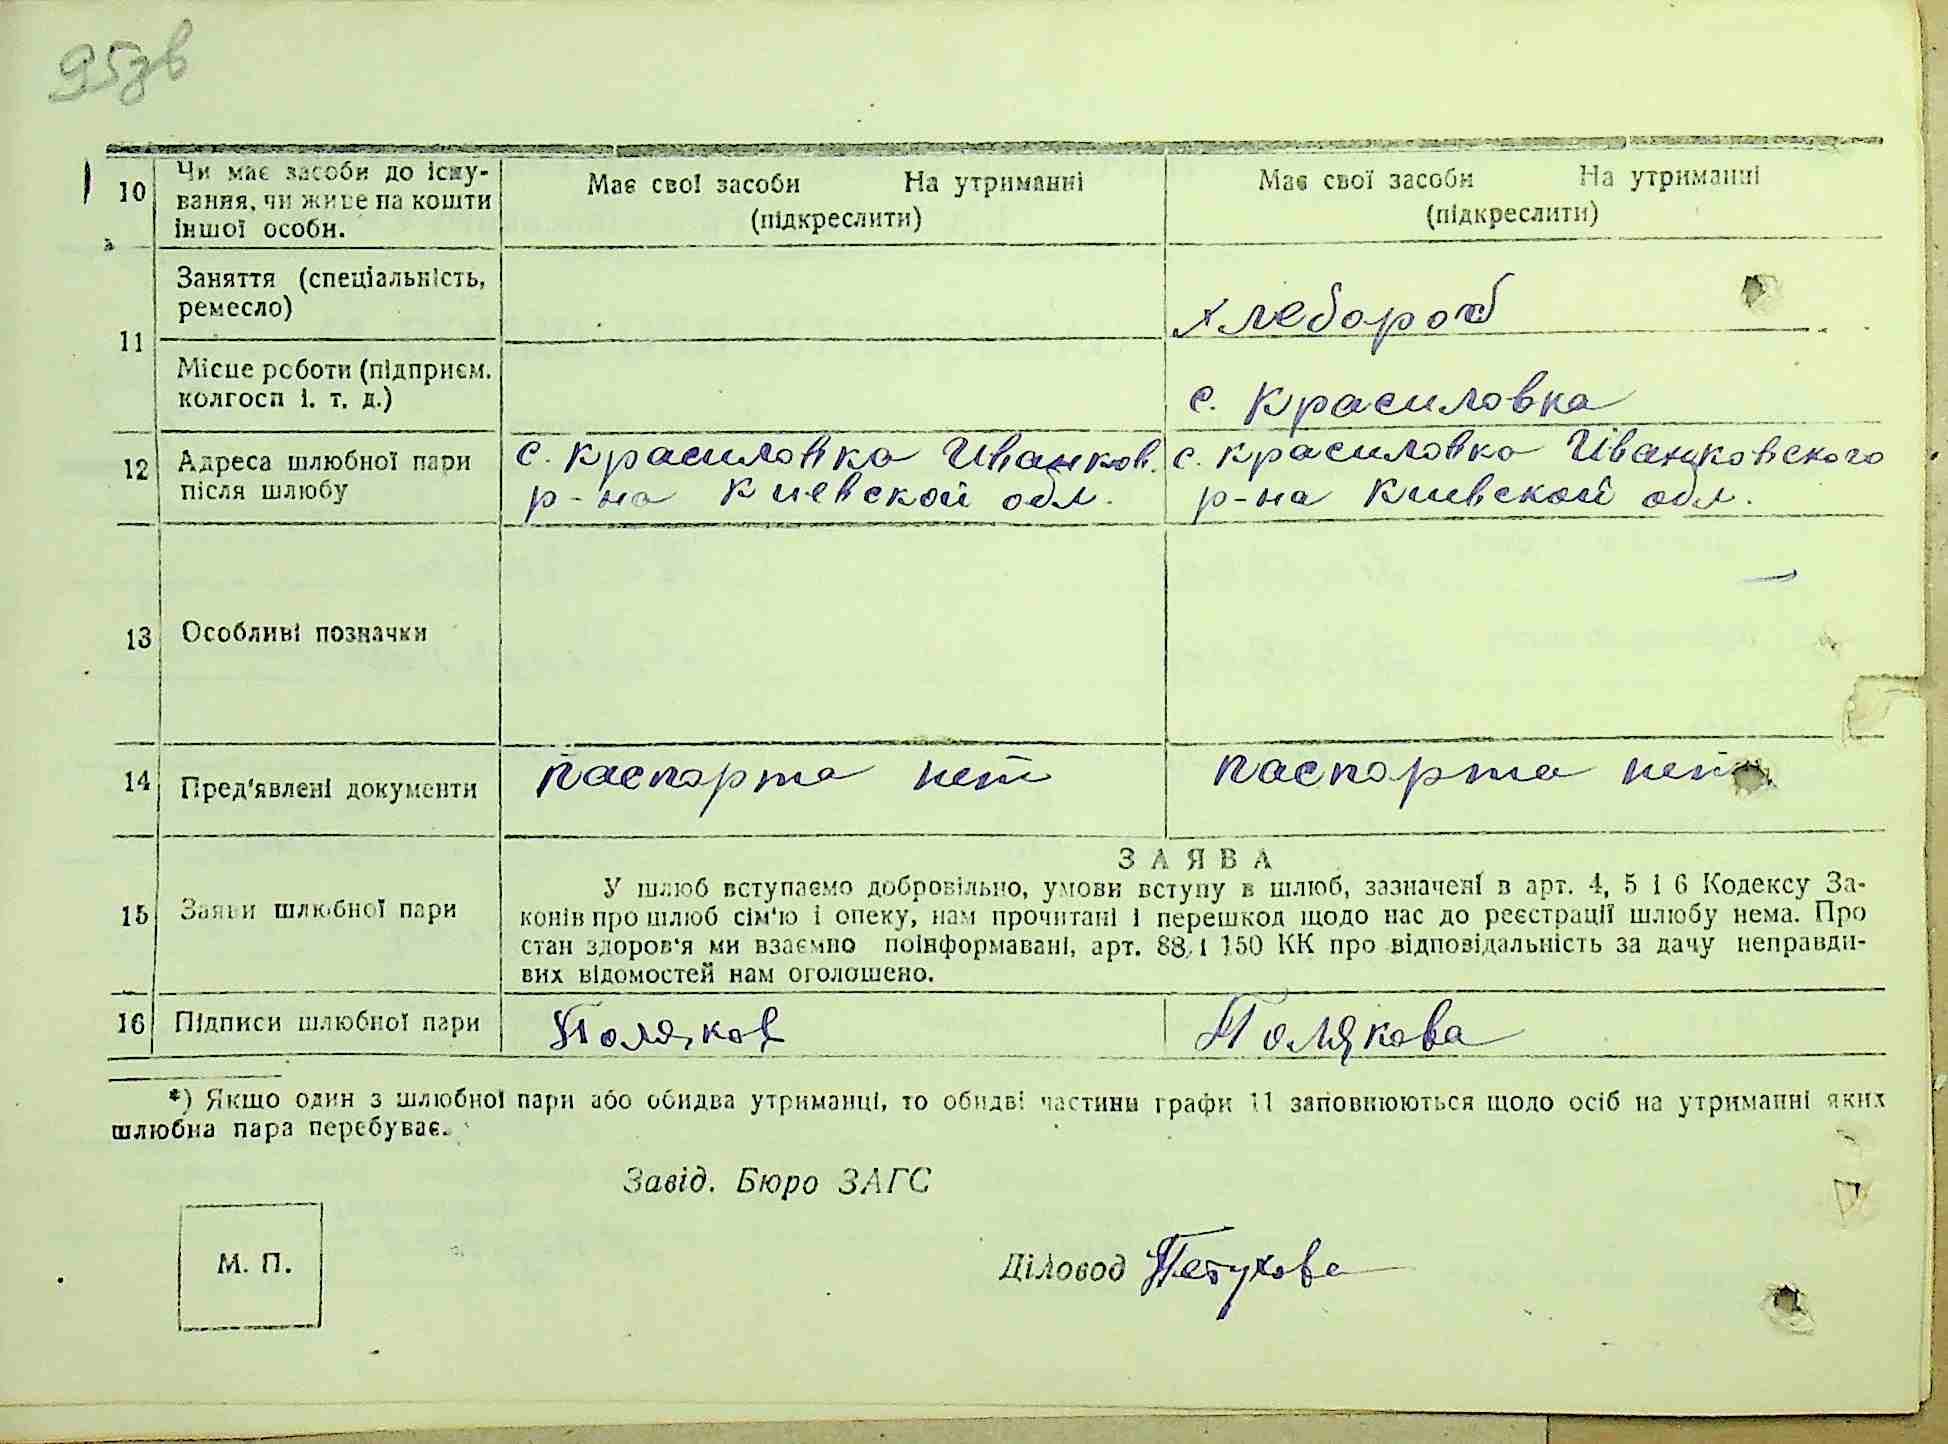 95зв
10 Чи має засоби до існу-
вання, чи живе на кошти
іншої особи.
Має свої засоби На утриманні
(підкреслити)
Має свої засоби На утриманні
(підкреслити)
11
Заняття (спеціальність,
ремесло)
хлебороб
Місце роботи (підприєм.
колгосп і. т. д.)
с. Красиловка
12 Адреса шлюбної пари
після шлюбу
с. Красиловка Иванков.
р-на Киевской обл.
с. Красиловка Иванковского
р-на Киевской обл.
13 Особливі позначки
14 Пред'явлені документи
паспорта нет
паспорта нет
15 Заяви шлюбної пари
ЗАЯВА
У шлюб вступаємо добровільно, умови вступу в шлюб, зазначені в арт. 4, 5 і 6 Кодексу За-
конів про шлюб сім'ю і опеку, нам прочитані і перешкод щодо нас до реєстрації шлюбу нема. Про
стан здоров'я ми взаємно поінформавані, арт. 88 і 150 КК про відповідальність за дачу неправди-
вих відомостей нам оголошено.
16 Підписи шлюбної пари
Поляков
Полякова
*) Якщо один з шлюбної пари або обидва утриманці, то обидві частини графи 11 заповнюються щодо осіб на утриманні яких
шлюбна пара перебуває.
Завід. Бюро ЗАГС
М. П.
Діловод Петухова